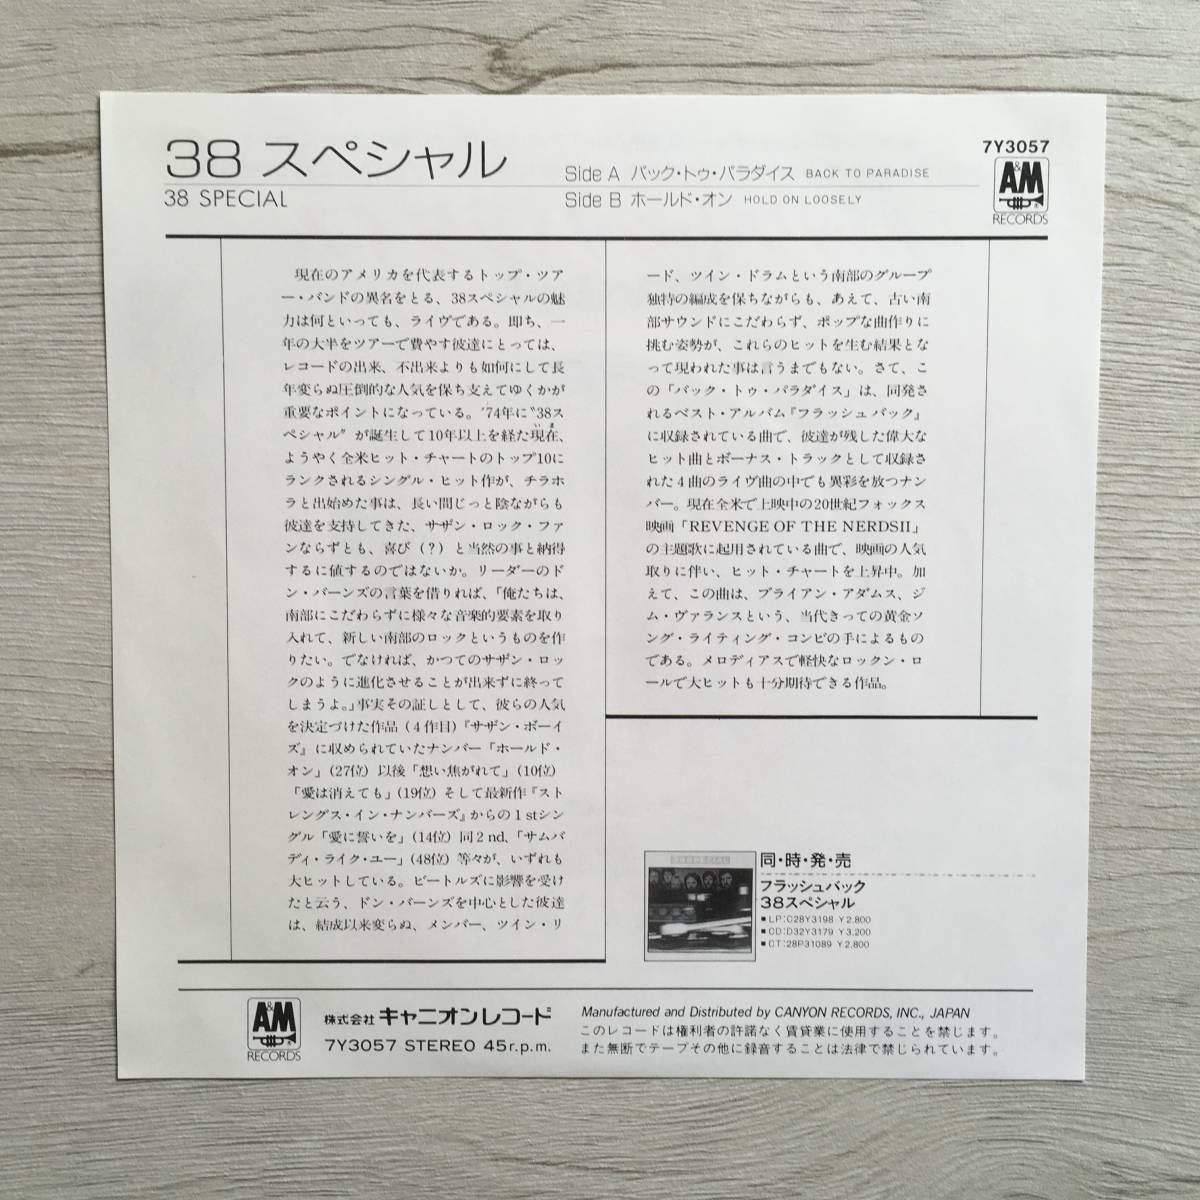 38 スペシャル
38 SPECIAL
Side A バック・トゥ・パラダイス BACK TO PARADISE
Side B ホールド・オン HOLD ON LOOSELY
7Y3057
A&M
RECORDS
現在のアメリカを代表するトップ・ツア
ー・バンドの異名をとる、38スペシャルの魅
力は何といっても、ライヴである。即ち、一
年の大半をツアーで費やす彼達にとっては、
レコードの出来、不出来よりも如何にして長
年変らぬ圧倒的な人気を保ち支えてゆくかが
重要なポイントになっている。'74年に〝38ス
ペシャル〟が誕生して10年以上を経た現在、
いま
ようやく全米ヒット・チャートのトップ10に
ランクされるシングル・ヒット作が、チラホ
ラと出始めた事は、長い間じっと陰ながらも
彼達を支持してきた、サザン・ロック・ファ
ンならずとも、喜び(?)と当然の事と納得
するに値するのではないか。リーダーのド
ン・バーンズの言葉を借りれば、「俺たちは、
南部にこだわらずに様々な音楽的要素を取り
入れて、新しい南部のロックというものを作
りたい。でなければ、かつてのサザン・ロッ
クのように進化させることが出来ずに終って
しまうよ。」事実その証しとして、彼らの人気
を決定づけた作品(4作目)『サザン・ボーイ
ズ』に収められていたナンバー「ホールド・
オン」(27位)以後「想い焦がれて」(10位)
「愛は消えても」(19位)そして最新作『スト
レングス・イン・ナンバーズ』からの1stシン
グル「愛に誓いを」(14位)同2nd、「サムバ
ディ・ライク・ユー」(48位)等々が、いずれも
大ヒットしている。ビートルズに影響を受け
たと云う、ドン・バーンズを中心とした彼達
は、結成以来変らぬ、メンバー、ツイン・リ
ード、ツイン・ドラムという南部のグループ
独特の編成を保ちながらも、あえて、古い南
部サウンドにこだわらず、ポップな曲作りに
挑む姿勢が、これらのヒットを生む結果とな
って現われた事は言うまでもない。さて、こ
の「バック・トゥ・パラダイス」は、同発さ
れるベスト・アルバム『フラッシュバック』
に収録されている曲で、彼達が残した偉大な
ヒット曲とボーナス・トラックとして収録さ
れた4曲のライヴ曲の中でも異彩を放つナン
バー。現在全米で上映中の20世紀フォックス
映画「REVENGE OF THE NERDSII」
の主題歌に起用されている曲で、映画の人気
取りに伴い、ヒット・チャートを上昇中。加
えて、この曲は、ブライアン・アダムス、ジ
ム・ヴァランスという、当代きっての黄金ソ
ング・ライティング・コンビの手によるもの
である。メロディアスで軽快なロックン・ロ
ールで大ヒットも十分期待できる作品。
同・時・発・売
フラッシュバック
38スペシャル
■LP:C28Y3198 ¥2.800
■CD:D32Y3179 ¥3.200
■CT:28P31089 ¥2.800
A&M
RECORDS
株式会社 キャニオンレコード
7Y3057 STEREO 45r.p.m.
Manufactured and Distributed by CANYON RECORDS, INC., JAPAN
このレコードは権利者の許諾なく賃貸業に使用することを禁じます。
また無断でテープその他に録音することは法律で禁じられています。